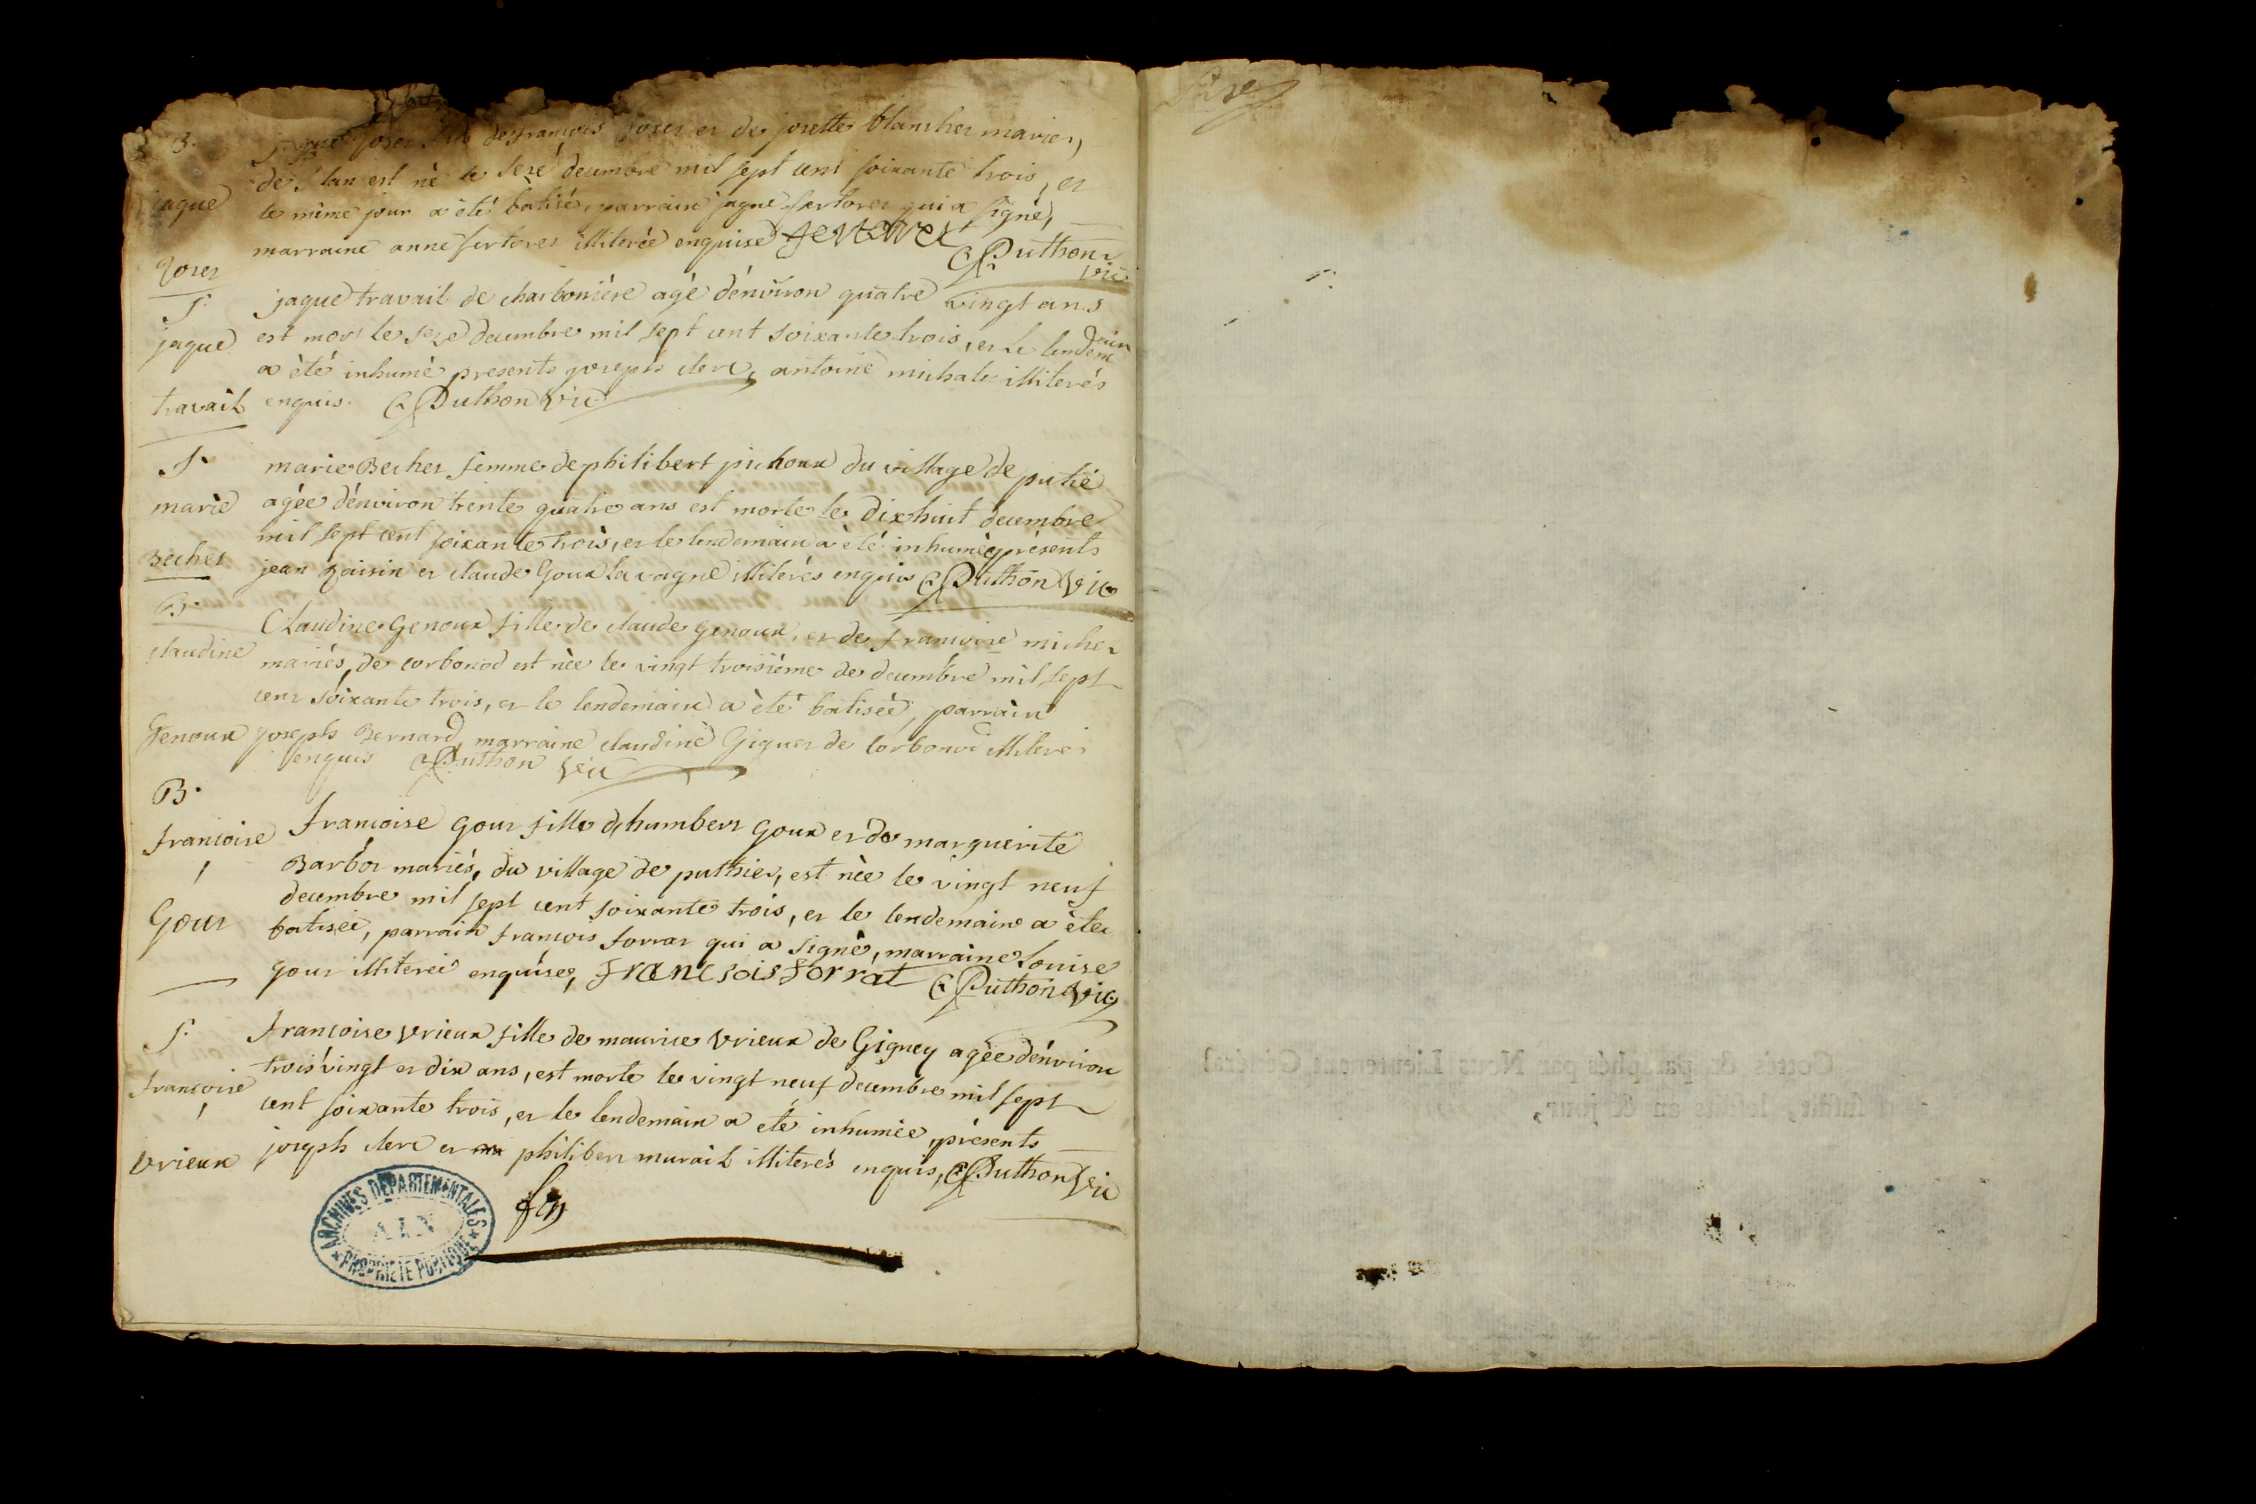 B.
jaque
jaque joser fils de françois joser et de josette blancher mariés,
de Ilan est nè le seze decembre mil sept cent soixante trois, et
le même jour a èté batisé, parrain jaque fertoret qui a signé,
marraine anne fertoret illiterée enquise fertoret C Puthon
vic
Joser
S.
jaque
travail
jaque travail de charboniére agé d'environ quatre vingt ans
est mort le seze decembre mil sept cent soixante trois, et le lendemain
a èté inhumè presents joseph clerc, antoine michale illiterés
enquis. C Puthon vic
S.
marie
Becher
marie Becher femme de philibert pichoux du village de putié
agée d'environ trente quatre ans est morte le dixhuit decembre
mil sept cent soixante trois, et le lendemain a èté inhumée présents
jean zoisin et claude Goux lavagne illiterés enquis C Puthon vic
B.
claudine
Genoux
Claudine Genoux fille de claude genoux, et de francoise micher
mariés, de corbonod est nèe le vingt troisième de decembre mil sept
cent soixante trois, et le lendemain a èté batisèe, parrain
joseph Bernard, marraine claudine Giguer de Corbonod illiterés
enquis C Puthon vic
B.
francoise
Gour
francoise gour fille d'humbert goux et de marguerite
Barbót mariés, du village de puthier, est nèe le vingt neuf
decembre mil sept cent soixante trois, et le lendemain a èté
batisèe, parrain francois forrat qui a signé, marraine Louise
gour illiterée enquise, francsois forrat C Puthon vic
S.
francoise
vrieux
francoise vrieux fille de maurice vrieux de Gigney agèe d'environ
trois vingt et dix ans, est morte le vingt neuf decembre mil sept
cent soixante trois, et le lendemain a èté inhumée, présents
joseph clerc et philibert murail illiterés enquis, C Puthon vic
fin
ARCHIVES DEPARTEMENTALES
AIN
PROPRIETE PUBLIQUE
Cottés & paraphés par Nous Lieutenant Général
susdit, lesdits an & jour,